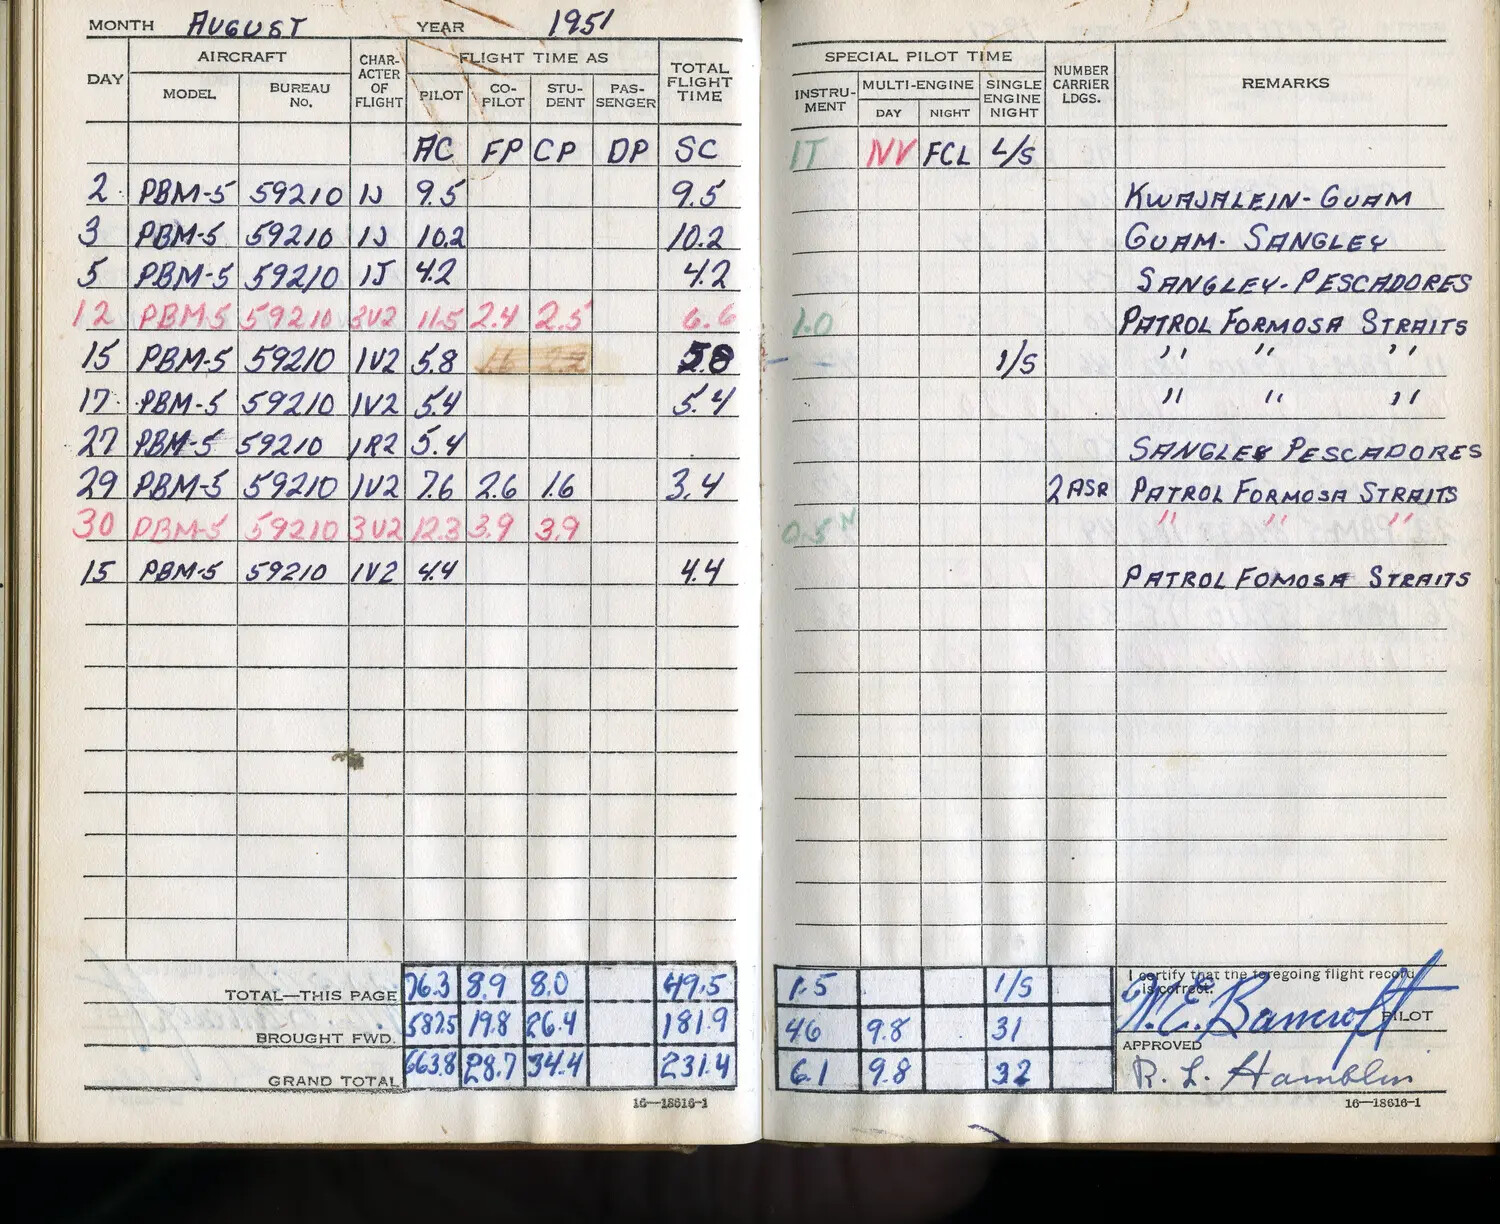 MONTH AUGUST YEAR 1951
DAY AIRCRAFT CHAR-ACTER OF FLIGHT FLIGHT TIME AS TOTAL FLIGHT TIME
MODEL BUREAU No. PILOT CO-PILOT STU-DENT PAS-SENGER
AC FP CP DP SC
2 PBM-5 59210 1J 9.5 9.5
3 PBM-5 59210 1J 10.2 10.2
5 PBM-5 59210 1J 4.2 4.2
12 PBM-5 59210 3V2 11.5 2.4 2.5 6.6
15 PBM-5 59210 1V2 5.8 5.8
17 PBM-5 59210 1V2 5.4 5.4
27 PBM-5 59210 1R2 5.4
29 PBM-5 59210 1V2 7.6 2.6 1.6 3.4
30 PBM-5 59210 3V2 12.3 3.9 3.9
15 PBM-5 59210 1V2 4.4 4.4
TOTAL—THIS PAGE 76.3 8.9 8.0 49.5
BROUGHT FWD. 587.5 19.8 26.4 181.9
GRAND TOTAL 663.8 28.7 34.4 231.4
16—18616-1
SPECIAL PILOT TIME NUMBER CARRIER LDGS. REMARKS
INSTRU-MENT MULTI-ENGINE SINGLE ENGINE NIGHT
DAY NIGHT
IT NV FCL L/S
KWAJALEIN - GUAM
GUAM - SANGLEY
SANGLEY - PESCADORES
1.0 PATROL FORMOSA STRAITS
1/S " " "
" " "
SANGLEY PESCADORES
2 ASR PATROL FORMOSA STRAITS
0.5 N " " "
PATROL FOMOSA STRAITS
1.5 1/S I certify that the foregoing flight record is correct.
46 9.8 31 W. E. Bancroft PILOT
APPROVED
6.1 9.8 32 R. L. Hamblin
16—18616-1